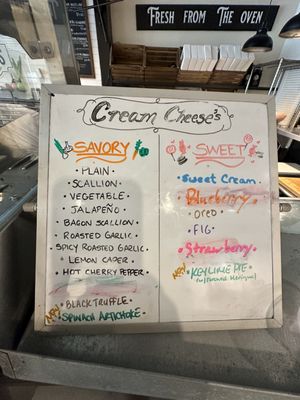 FRESH FROM THE OVEN
Cream Cheese's
SAVORY
• PLAIN •
• SCALLION •
• VEGETABLE •
• JALAPEÑO •
• BACON SCALLION •
• ROASTED GARLIC •
• SPICY ROASTED GARLIC •
• LEMON CAPER •
• HOT CHERRY PEPPER •
• BLACK TRUFFLE •
• SPINACH ARTICHOKE •
SWEET
• Sweet Cream •
• Blueberry •
• OREO •
• FIG •
• Strawberry •
• KEY LIME PIE •